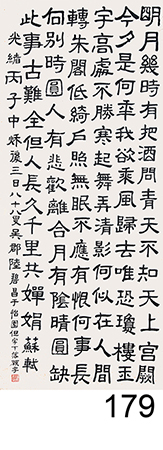 明月幾時有把酒問青天不知天上宮闕
今夕是何年我欲乘風歸去唯恐瓊樓玉
宇高處不勝寒起舞弄清影何似在人間
轉朱閣低綺戶照無眠不應有恨何事長
向別時圓人有悲歡離合月有陰晴圓缺
此事古難全但人長久千里共嬋娟蘇軾
光緒丙子中秋後三日八十八叟吳郡陸
179